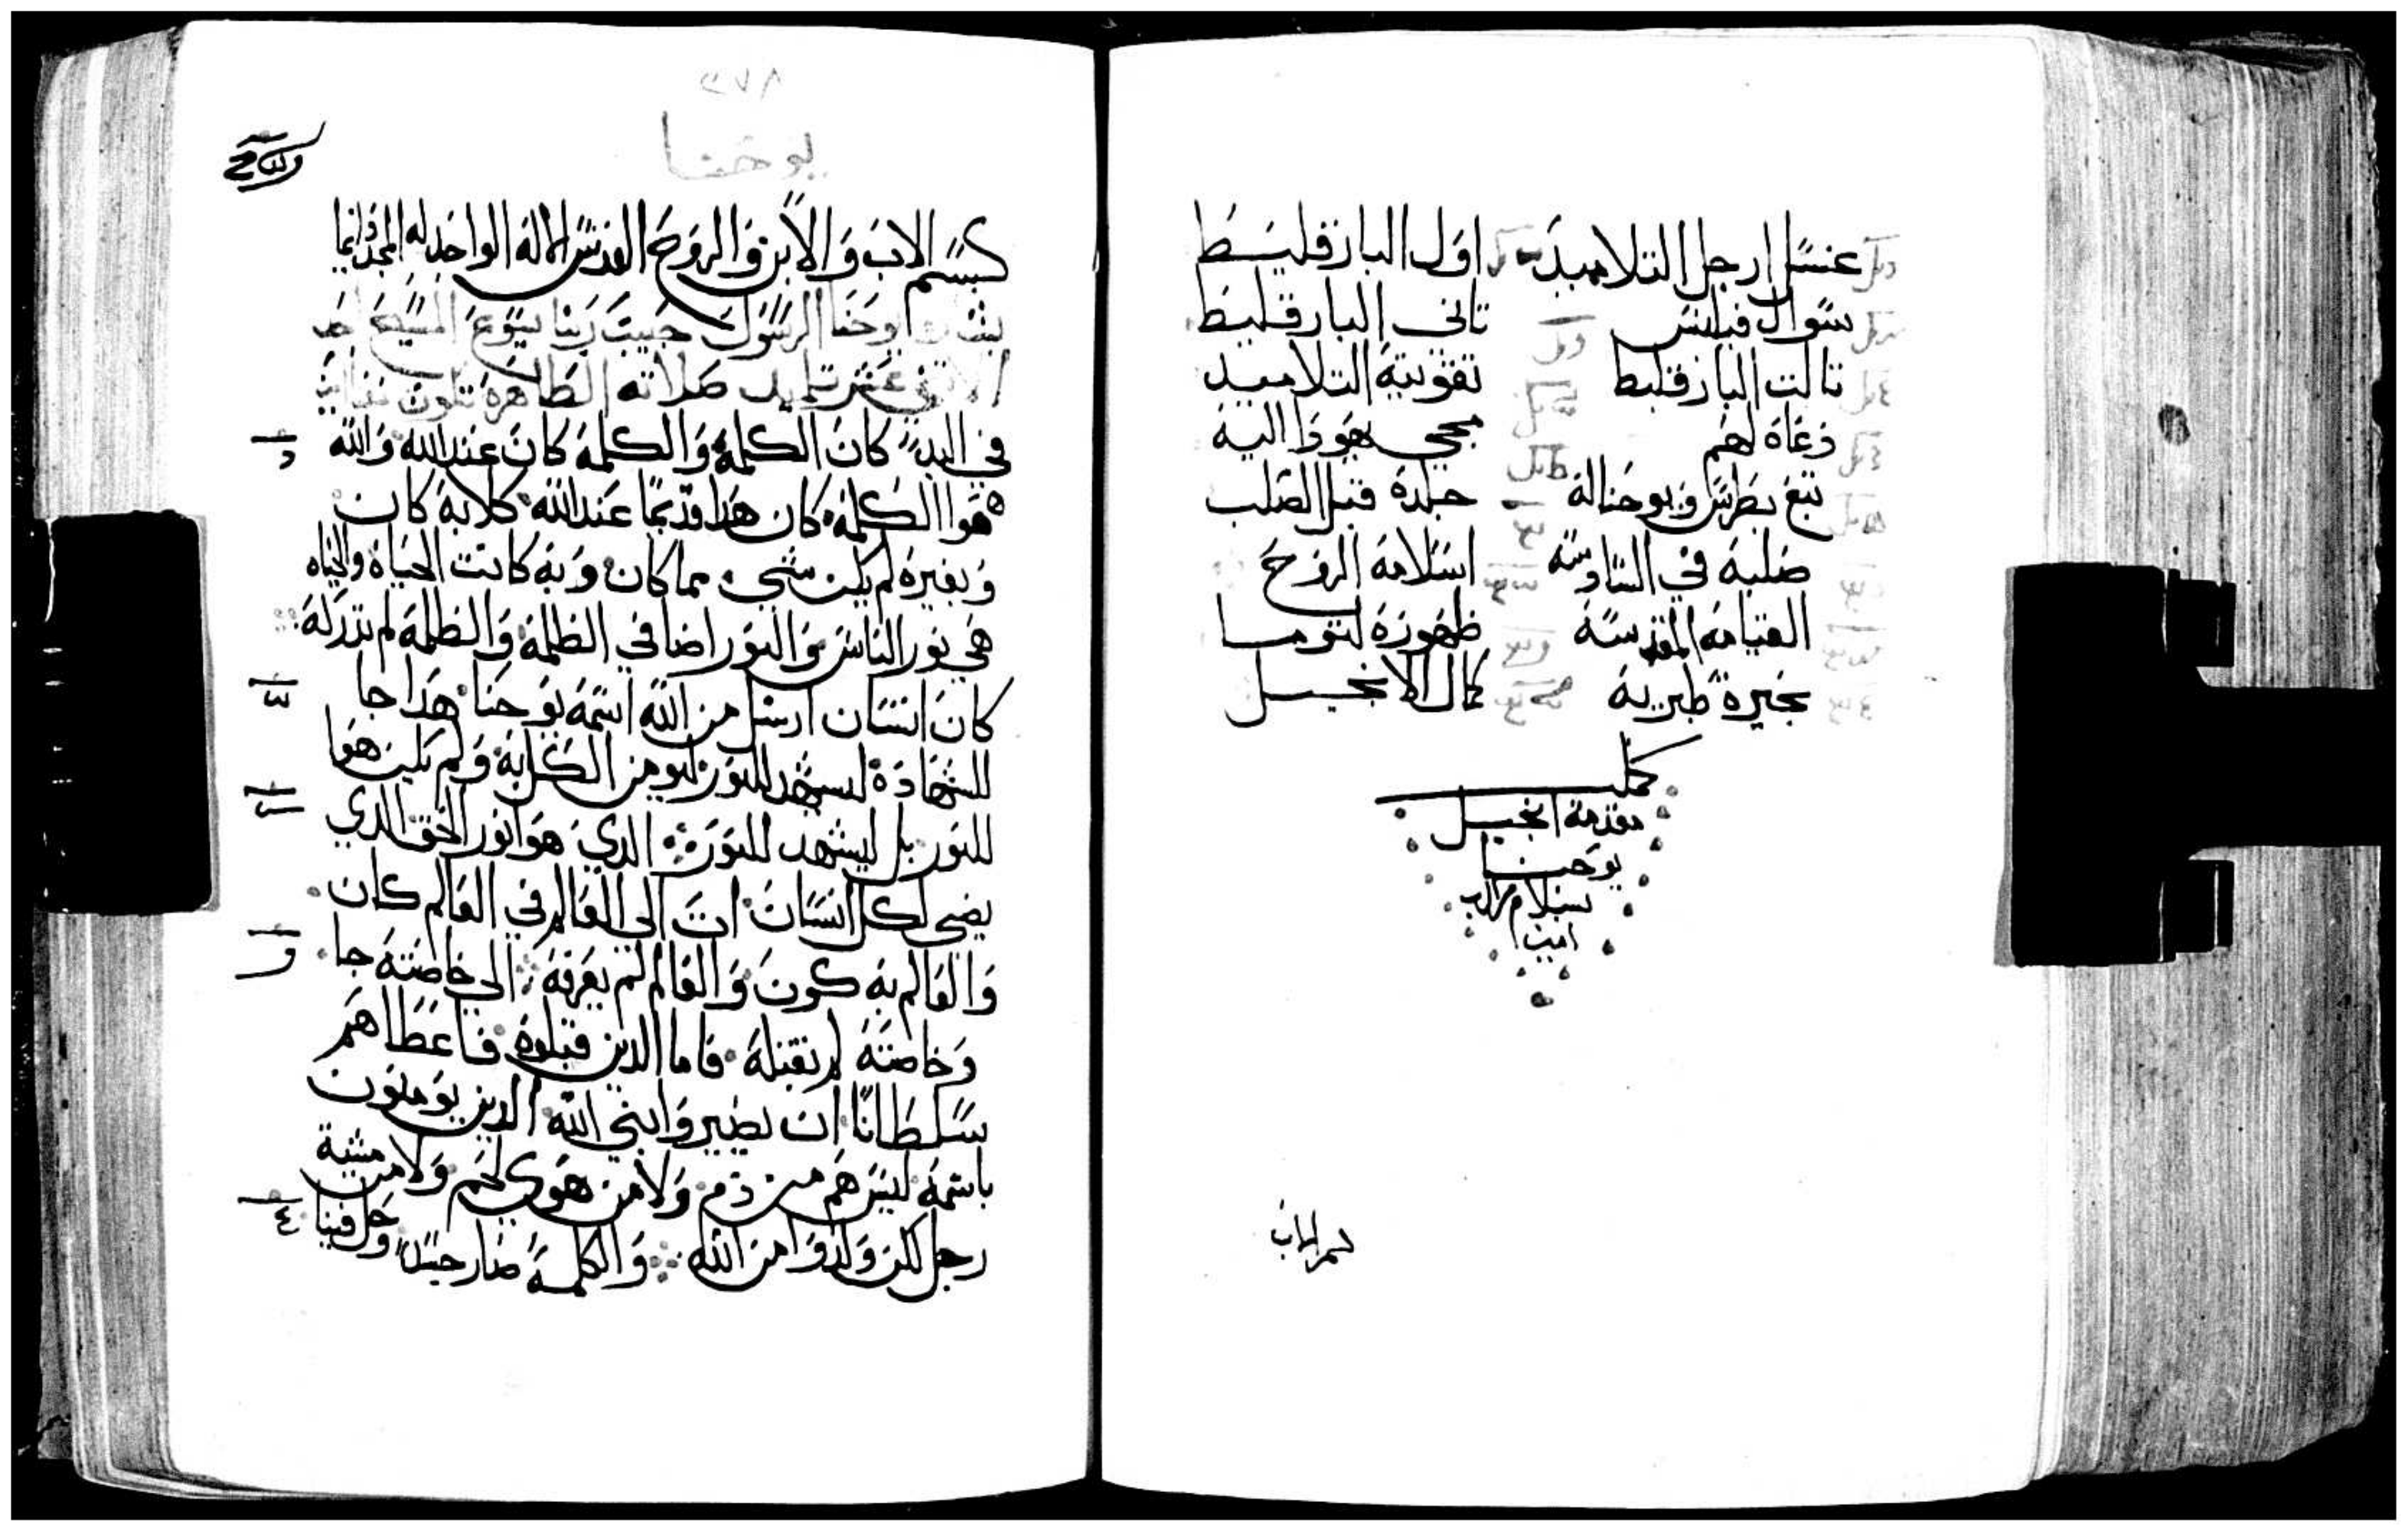 غسل ارجل التلاميد
اول البارقليط
سوال فيلبس
تانى البارقليط
تالت البارقليط
تقويتة التلاميد
دعاة لهم
مجي يهودا اليه
تبع بطرس ويوحنا له
جلدة قبل الصلب
صلبة في السادسة
اسلامه الروح
القيامه المقدسة
ظهورة لتوما
بحيرة طبرية
كمال الانجيل
كملت
مقدمة انجيل
يوحنا
بسلام من الرب
امين
بسم الاب
٢٧٨
يوحنا
بسم الاب والابن والروح القدس الاله الواحد له المجد دايما
يوحنا الرسول حبيب ربنا يسوع المسيح احد
الاتنى عشر تلميد صلاته الطاهرة تكون معنا امين
في البدء كان الكلمة والكلمة كان عند الله والله
هوا الكلمة كان هدا قديما عند الله كلا به كان
وبغيرة لم يكن شي مما كان وبه كانت الحياة والحياه
هي نور الناس والنور اضا في الظلمة والظلمة لم تدركه
كان انسان ارسل من الله اسمه يوحنا هدا جا
للشهادة ليشهد للنور ليومن الكل به ولم يكن هوا
النور بل ليشهد للنور الدي هوا نور الحق الدي
يضي لكل انسان ات الى العالم في العالم كان
والعالم به كون والعالم لم يعرفه الى خاصته جا
وخاصته لم تقبله فاما الدين قبلوة فاعطاهم
سلطانا ان يصيروا بني الله الدين يومنون
باسمه ليس هم من دم ولا من هوى لحم ولا من مشية
رجل لكن ولدوا من الله والكلمة صار جسدا وحل فينا